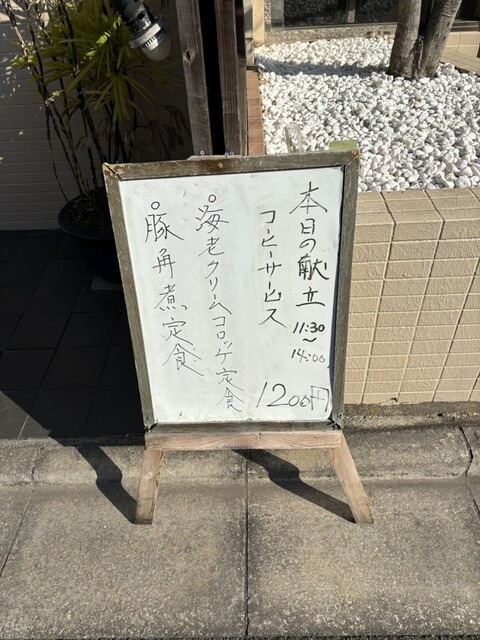 本日の献立
11:30
～
14:00
コーヒーサービス
1200円
○海老クリームコロッケ定食
○豚角煮定食